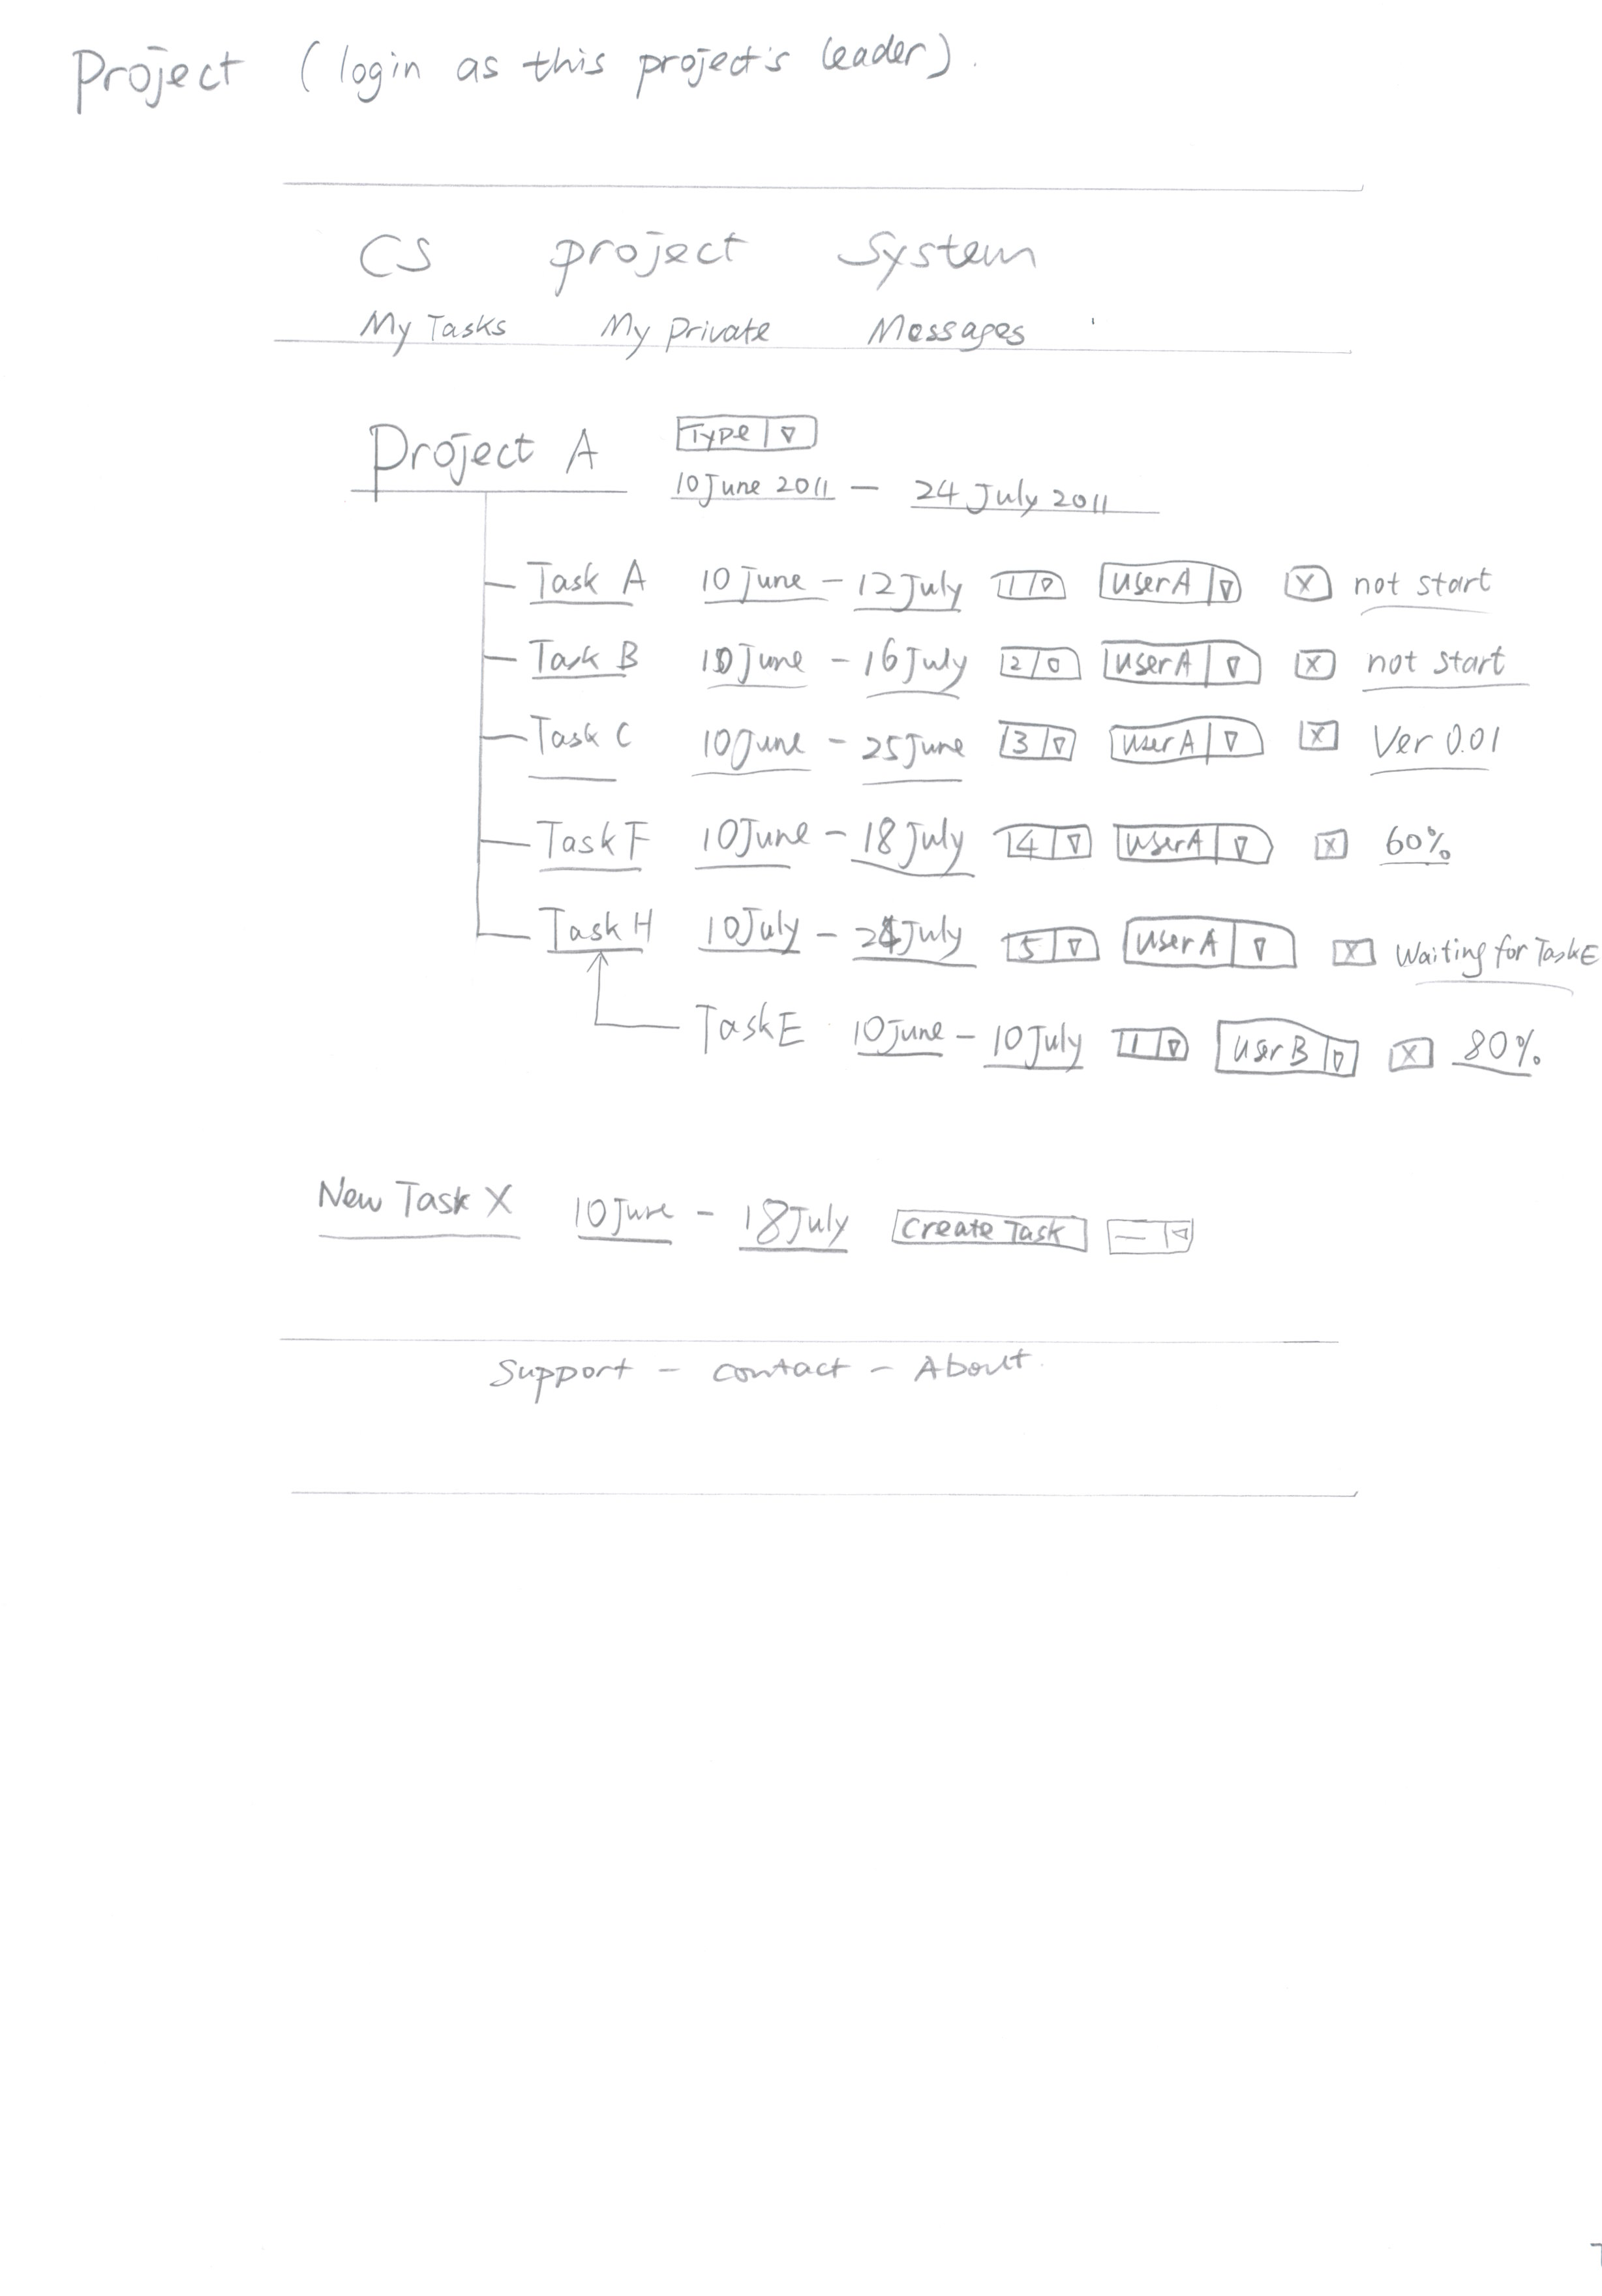 Project (login as this project's leader).
CS project System
My Tasks My Private Messages
Project A Type
10 June 2011 - 24 July 2011
Task A 10 June - 12 July 1 User A X not start
Task B 10 June - 16 July 2 User A X not start
Task C 10 June - 25 June 3 User A X Ver 0.01
Task F 10 June - 18 July 4 User A X 60%
Task H 10 July - 24 July 5 User A X Waiting for Task E
Task E 10 June - 10 July 1 User B X 80%
New Task X 10 June - 18 July Create Task —
Support - Contact - About.